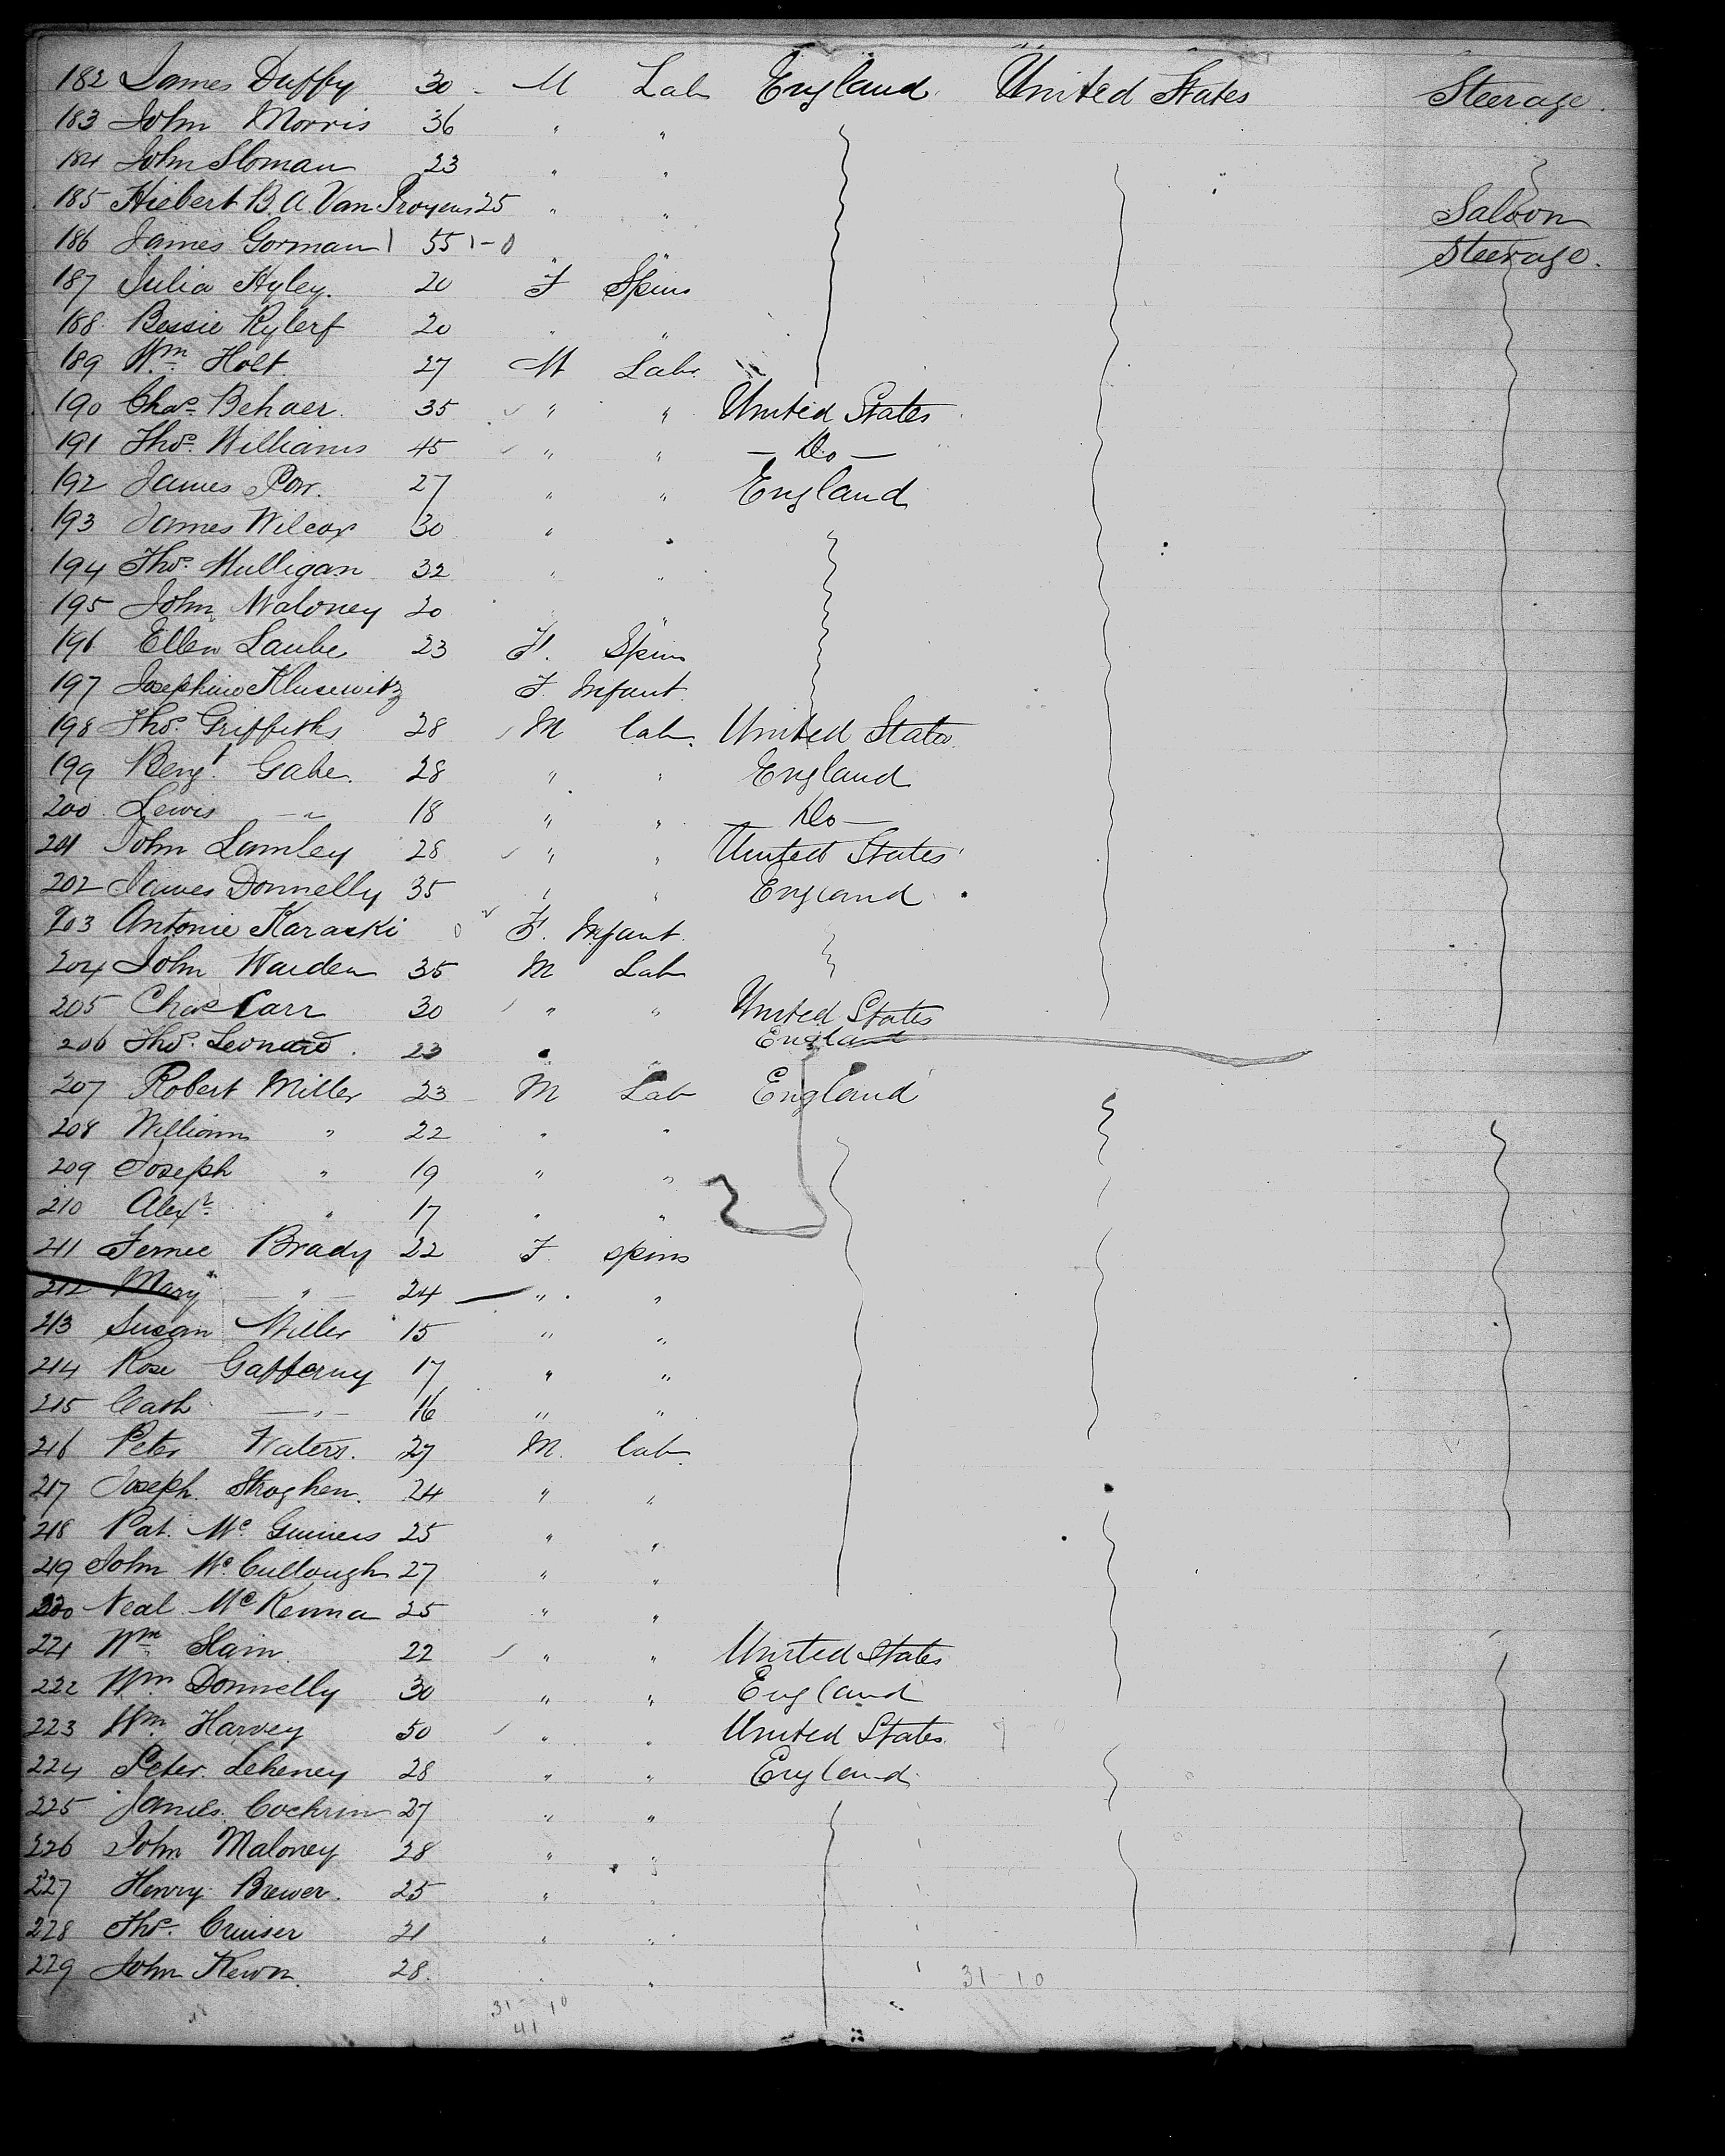 182 James Duffy 30 - M Lab England United States Steerage.
183 John Morris 36 " "
184 John Sloman 23 " "
185 Hiebert B. A. Van Proyens 25 " " Saloon
186 James Gorman 55 1-0 " " Steerage.
187 Julia Hyley. 20 F Spins
188 Bessie Rylert 20 " "
189 Wm Holt. 27 M Lab.
190 Chas Behaer. 35 " " United States
191 Thos. Williams 45 " " - Do -
192 James Porr. 27 " " England
193 James Wilcox 30 " "
194 Thos. Mulligan 32 " "
195 John Maloney 20 " "
196 Ellen Laube 23 F. Spins
197 Josephine Klusewitz F. Infant.
198 Thos. Griffiths 28 M lab. United States.
199 Benjt. Gabe. 28 " " England
200. Lewis - " 18 " " Do -
201 John Lamley 28 " " United States
202 James Donnelly 35 " " England
203 Antonie Karaski 0 F. Infant.
204 John Warden 35 M Lab
205 Chas Carr 30 " " United States
206 Thos. Leonard. 23 England
207 Robert Miller 23 M Lab England
208 William " 22 " "
209 Joseph " 19 " "
210 Alexr. " 17 " "
211 Fernee Brady 22 F. spins
212 Mary - " - 24 " "
213 Susan Miller 15 " "
214 Rose Gafferny 17 " "
215 Cath - " - 16 " "
216 Peter Waters. 27 M. lab.
217 Joseph. Stroghen. 24 " "
218 Pat. Mc. Guiners 25 " "
219 John Mc. Cullough 27 " "
220 Neal Mc Kenna 25 " "
221 Wm Slain. 22 " " United States
222 Wm. Donnelly 30 " " England
223 Wm. Harvey 50 " " United States.
224 Peter. Leheney 28 " " England
225 James. Cochrin 27 " "
226 John Maloney 28 " "
227 Henry Brewer. 25 " "
228 Thos. Cruiser 21 " "
229 John Kewn. 28. " " 31-10
31-10
41